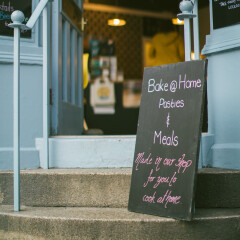 Bake@Home
Pasties
&
Meals
Made in our shop
for you to
cook at home